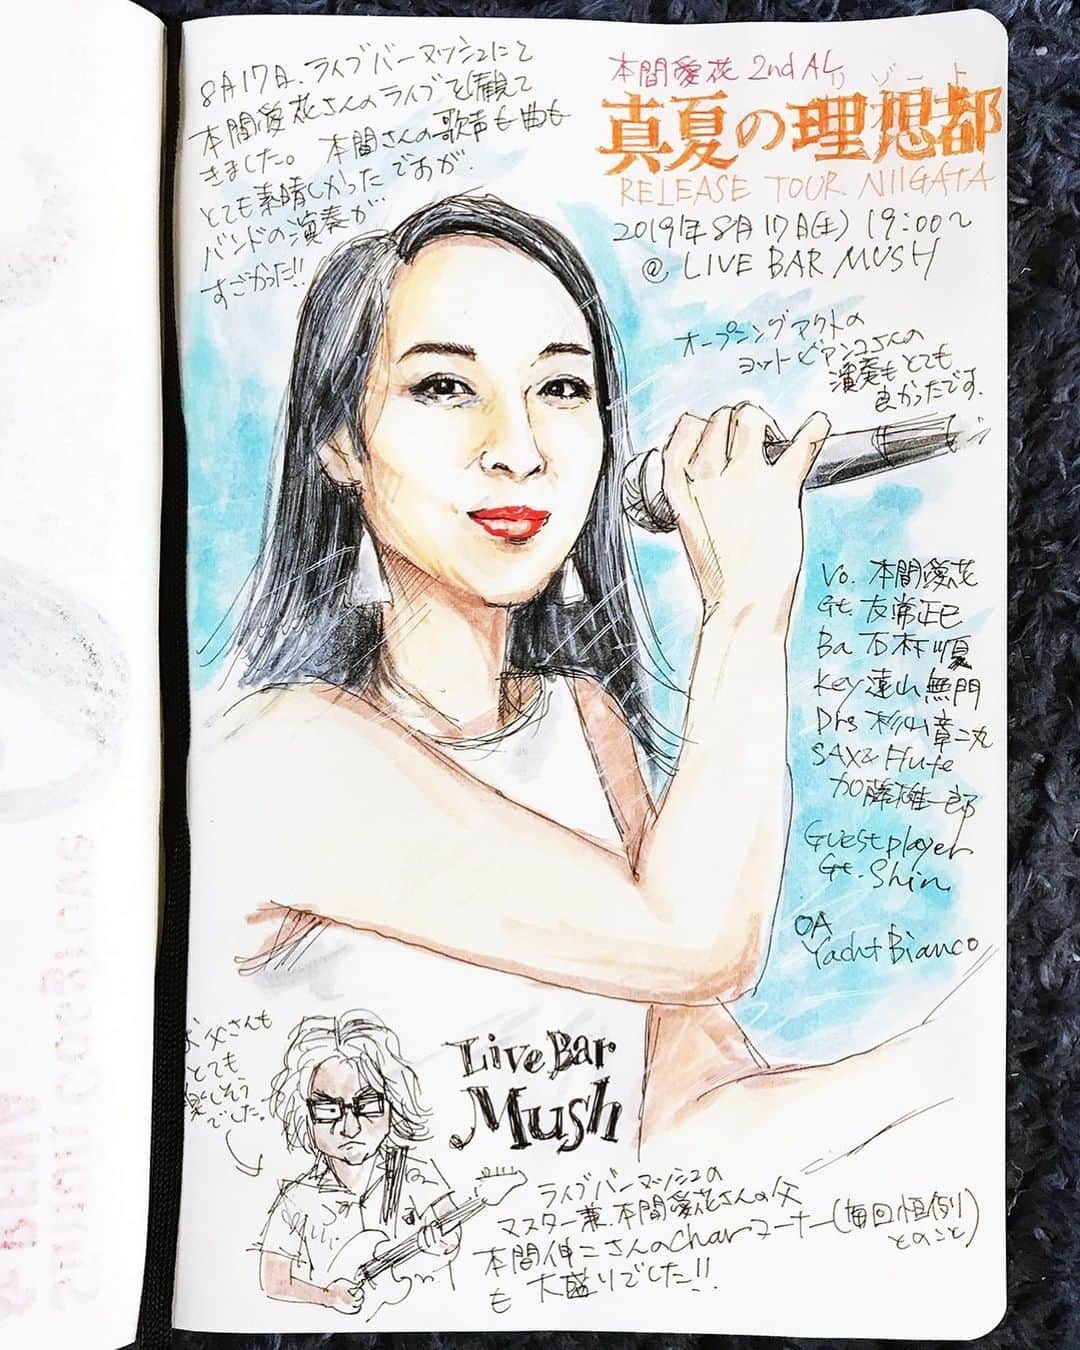 8月17日、ライブバーマッシュにて
本間愛花さんのライブを観て
きました。本間さんの歌声も曲も
とても素晴しかったですが、
バンドの演奏が
すごかった!!
本間愛花 2nd AL
リゾート
真夏の理想都
RELEASE TOUR NIIGATA
2019年8月17日(土) 19:00〜
@ LIVE BAR MUSH
オープニングアクトの
ヨットビアンコさんの
演奏もとても
良かったです.
Vo. 本間愛花
Gt. 友常正巳
Ba 石村順
Key 遠山無門
Drs 杉山章二丸
SAX & Flute
加藤雄一郎
Guest player
Gt. Shin
OA
Yacht Bianco
お父さんも
とても
楽しそう
でした。
Live Bar
Mush
ライブバーマッシュの
マスター兼、本間愛花さんの父
本間伸二さんのcharコーナー(毎回恒例
とのこと)
も大盛りでした!!